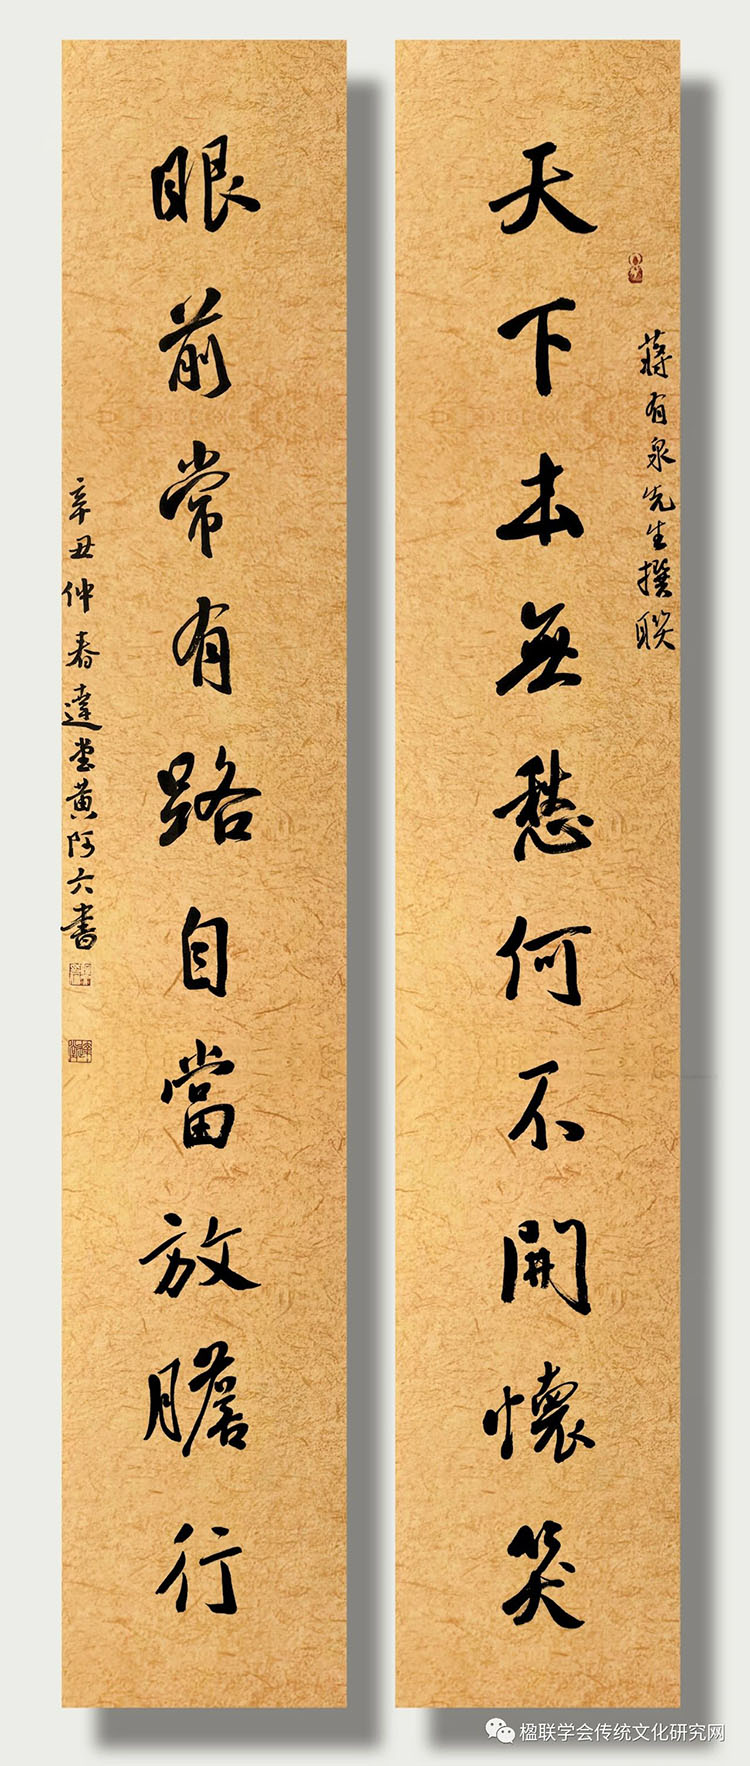 天下本無愁何不開懷笑
蔣有泉先生撰聯
眼前常有路自當放膽行
辛丑仲春達堂黃阿六書
楹联学会传统文化研究网